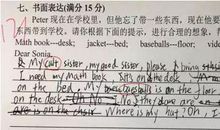 七、书面表达(满分 15 分)
Peter 现在在学校里，但他忘了带一些东西，现在他要
东西带到学校。请你根据下面的提示，进行合理的想象，
Math book—desk; jacket—bed; baseballs—floor; vid
Dear Sonia,
My sister, my good sister, please bring
I need my Math book. It's on the desk
on the bed. My baseballs is on the floor
on the desk. Oh No No the are on
is on the chair. Where is my hut? Oh, I